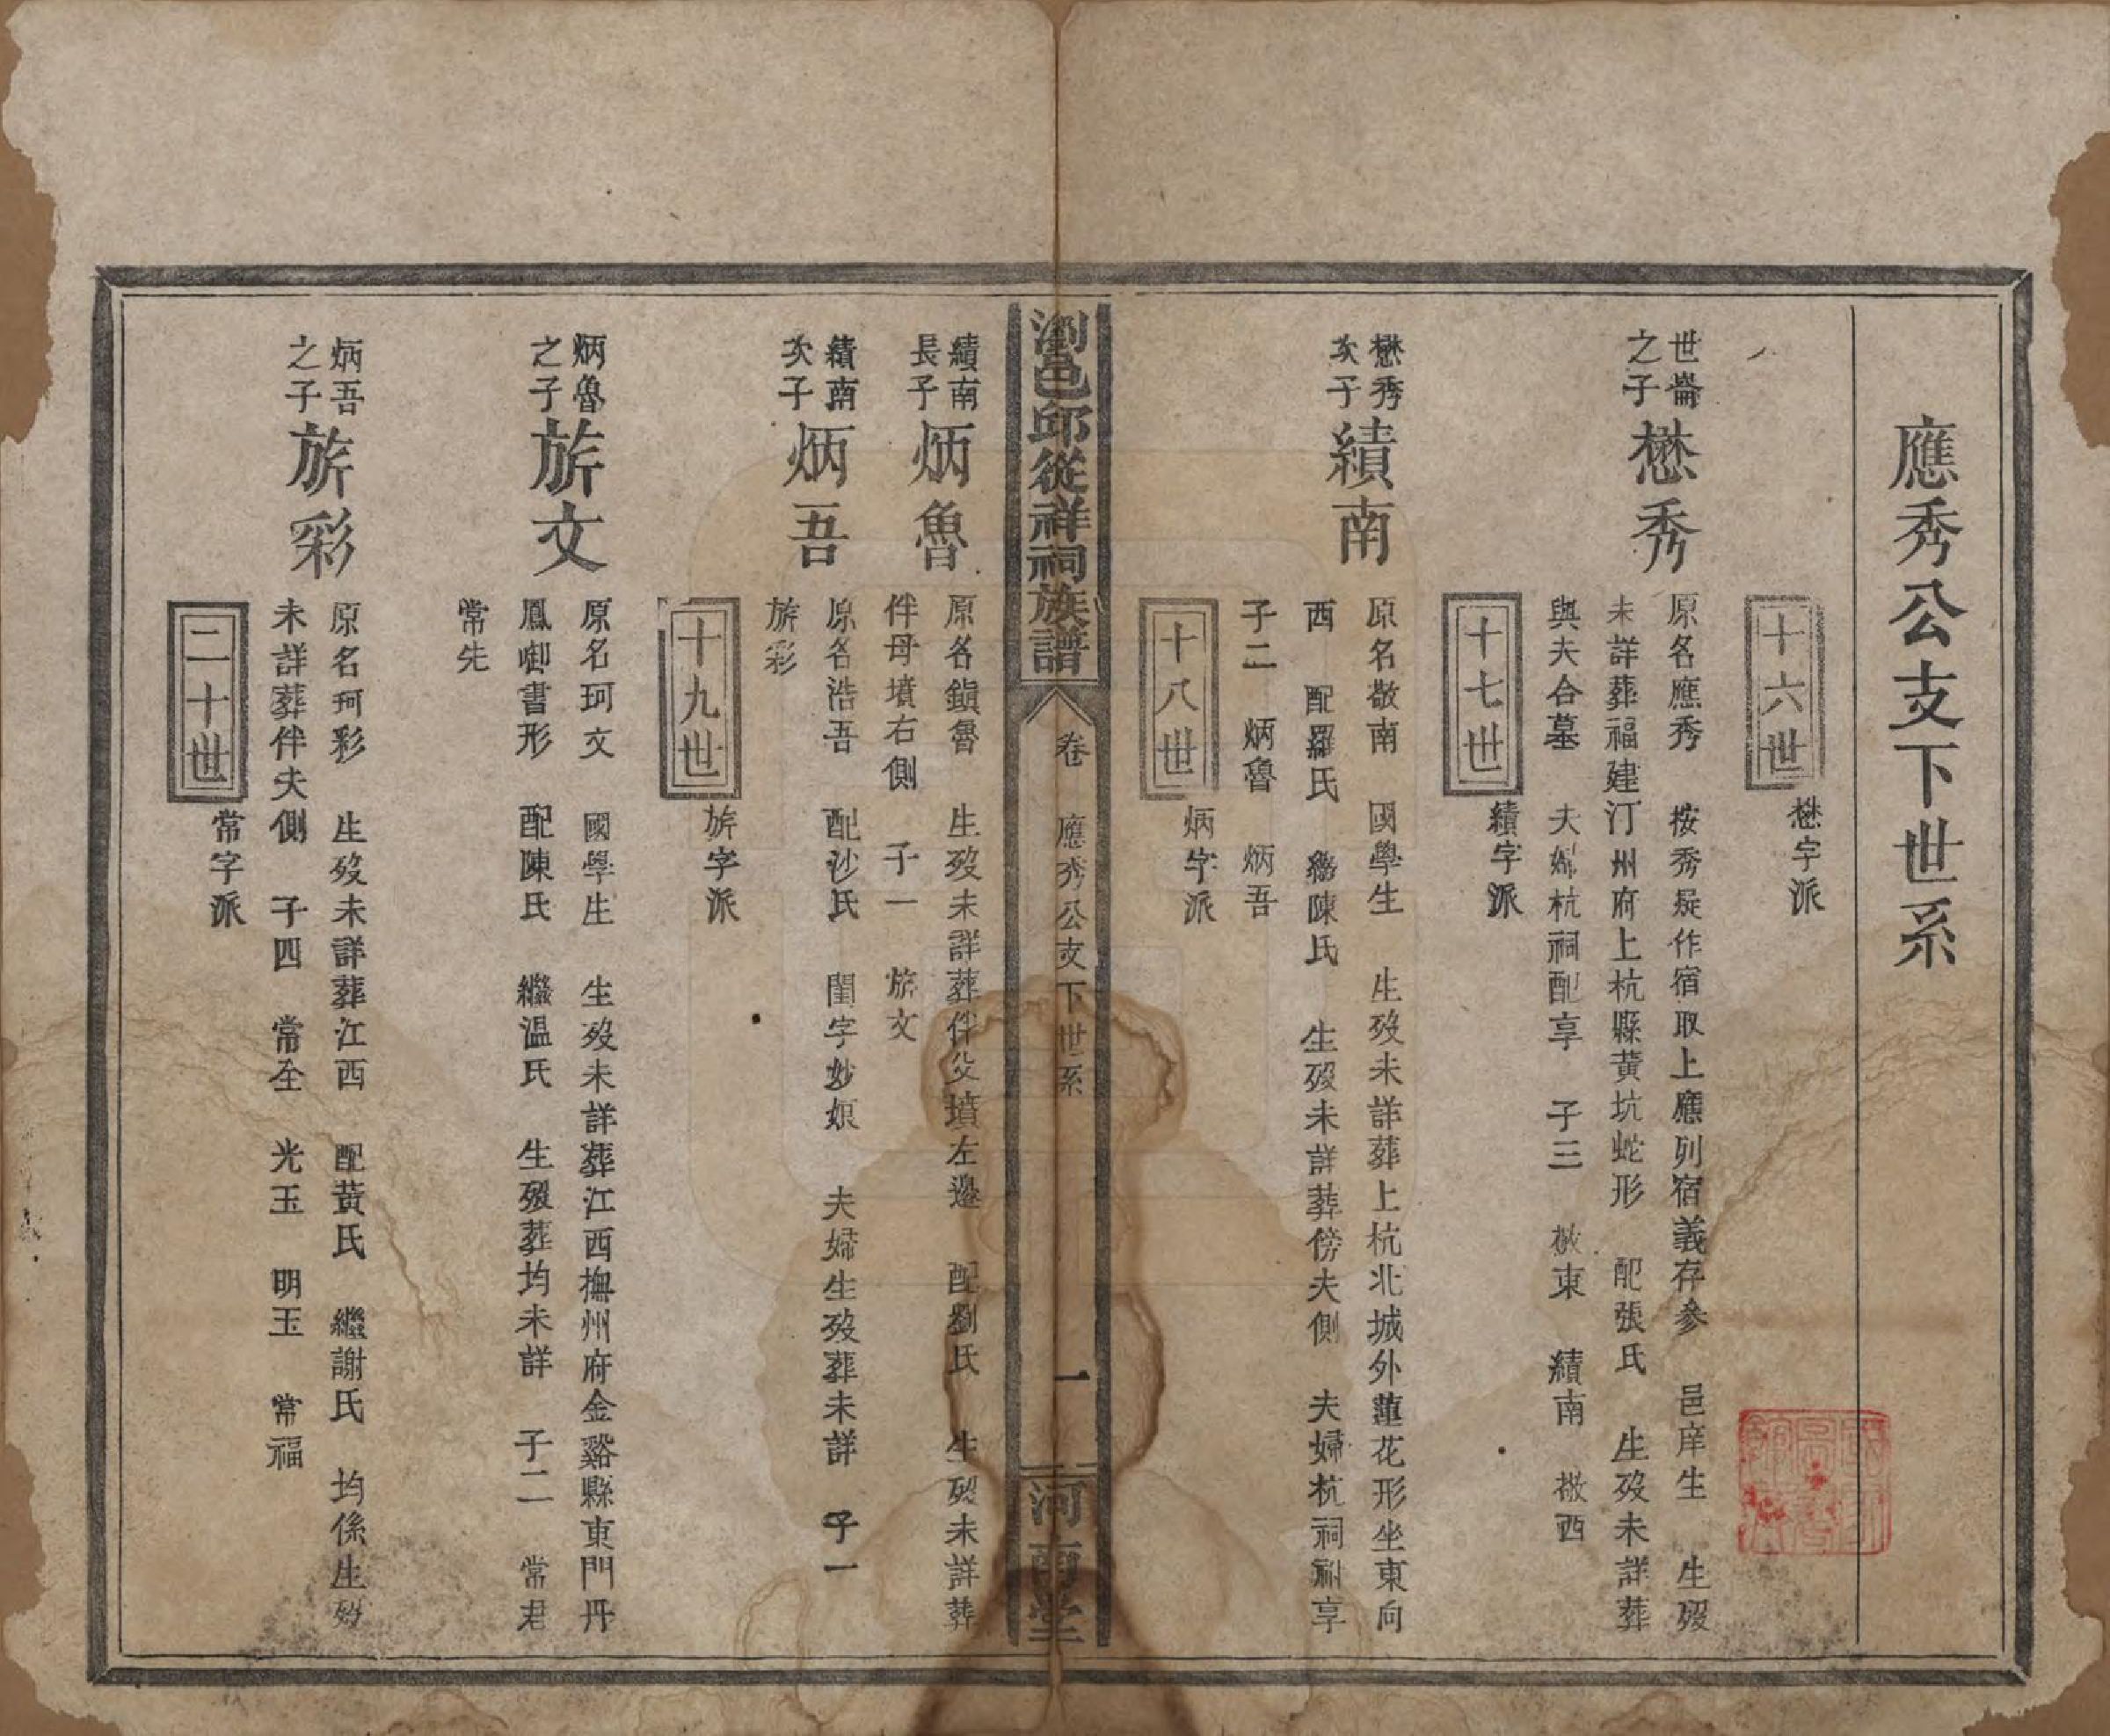 應秀公支下世系
十六世
懋字派
世崙
之子
懋秀
原名應秀 按秀疑作宿取上應列宿義存參 邑庠生 生歿
未詳葬福建汀州府上杭縣黃坑蛇形 配張氏 生歿未詳葬
與夫合墓 夫婦杭祠配享 子三 敬東 績南 敬西
十七世
績字派
懋秀
次子
績南
原名敬南 國學生 生歿未詳葬上杭北城外蓮花形坐東向
西 配羅氏 繼陳氏 生歿未詳葬傍夫側 夫婦杭祠祔享
子二 炳魯 炳吾
十八世
炳字派
瀏邑邱從祥祠族譜
卷 應秀公支下世系
一
河南堂
績南
長子
炳魯
原名鎮魯 生歿未詳葬伴父墳左邊 配劉氏 生歿未詳葬
伴母墳右側 子一 旂文
績南
次子
炳吾
原名浩吾 配沙氏 閨字妙娘 夫婦生歿葬未詳 子一
旂彩
十九世
旂字派
炳魯
之子
旂文
原名珂文 國學生 生歿未詳葬江西撫州府金谿縣東門丹
鳳啣書形 配陳氏 繼溫氏 生歿葬均未詳 子二 常君
常先
炳吾
之子
旂彩
原名珂彩 生歿未詳葬江西 配黃氏 繼謝氏 均係生歿
未詳葬伴夫側 子四 常全 光玉 明玉 常福
二十世
常字派